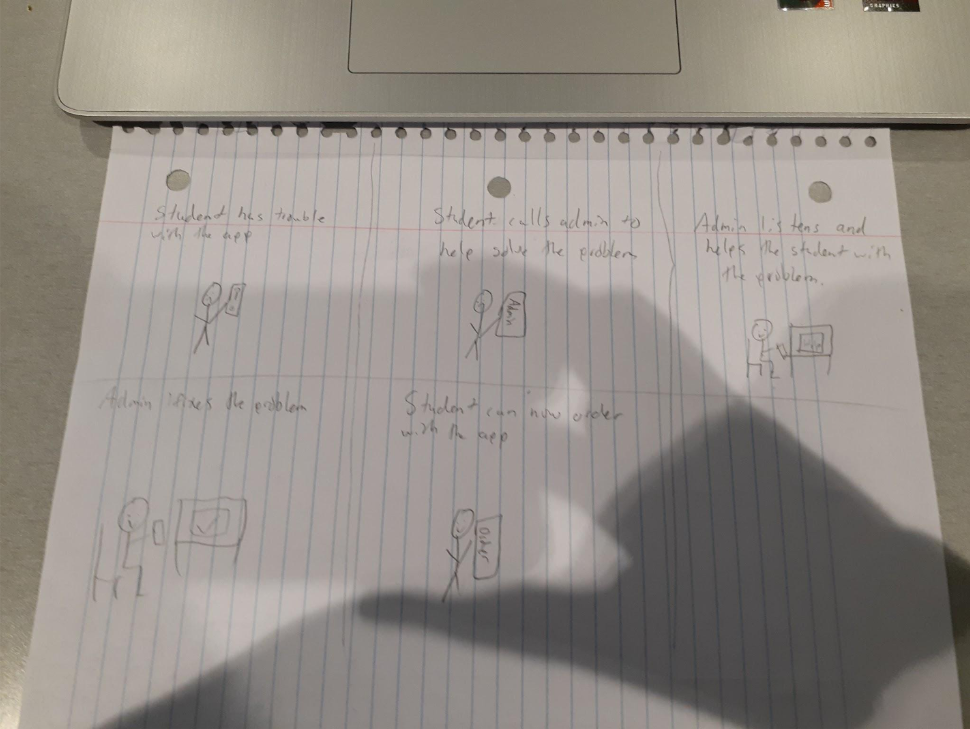 GRAPHICS
Student has trouble
with the app
Student calls admin to
help solve the problem
Admin
Admin listens and
helps the student with
the problem.
Admin fixes the problem
Student can now order
with the app
Order